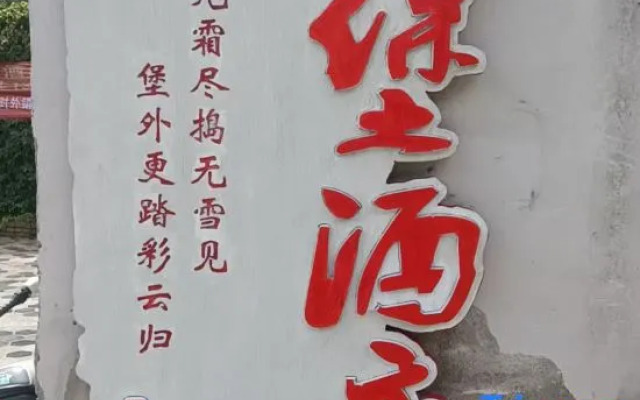 堡酒
霜尽捣无雪见
堡外更踏彩云归